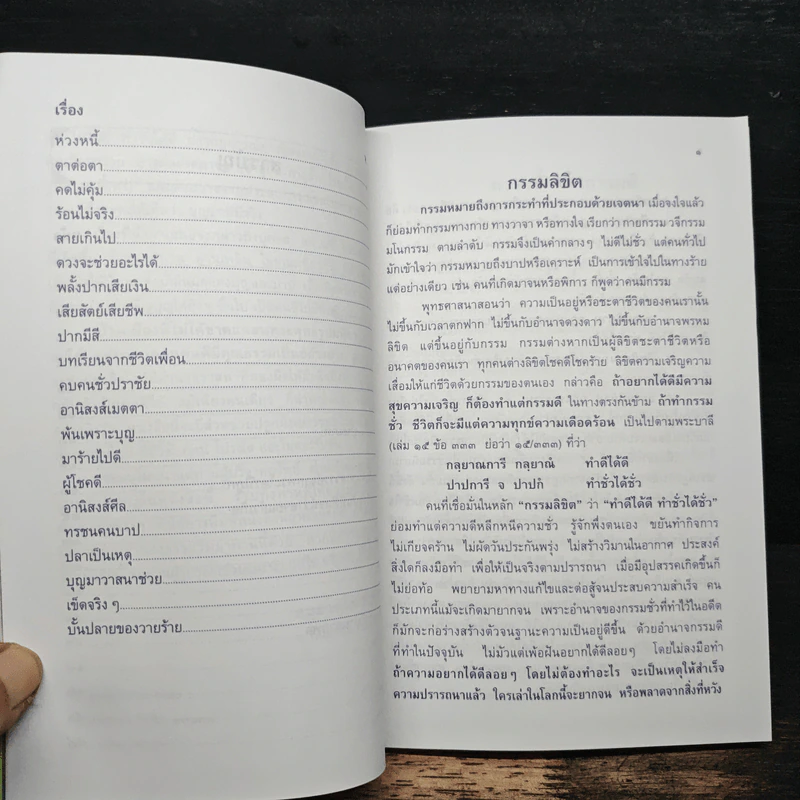 เรื่อง
ห่วงหนี้
ตาต่อตา
คดไม่คุ้ม
ร้อนไม่จริง
สายเกินไป
ดวงจะช่วยอะไรได้
พลั้งปากเสียเงิน
เสียสัตย์เสียชีพ
ปากมีสี
บทเรียนจากชีวิตเพื่อน
คบคนชั่วปราชัย
อานิสงส์เมตตา
พ้นเพราะบุญ
มาร้ายไปดี
ผู้โชคดี
อานิสงส์ศีล
ทรชนคนบาป
ปลาเป็นเหตุ
บุญมาวาสนาช่วย
เข็ดจริง ๆ
บั้นปลายของวายร้าย
๑
กรรมลิขิต
กรรมหมายถึงการกระทำที่ประกอบด้วยเจตนา เมื่อจงใจแล้ว
ก็ย่อมทำกรรมทางกาย ทางวาจา หรือทางใจ เรียกว่า กายกรรม วจีกรรม
มโนกรรม ตามลำดับ กรรมจึงเป็นคำกลางๆ ไม่ดีไม่ชั่ว แต่คนทั่วไป
มักเข้าใจว่า กรรมหมายถึงบาปหรือเคราะห์ เป็นการเข้าใจไปในทางร้าย
แต่อย่างเดียว เช่น คนที่เกิดมาจนหรือพิการ ก็พูดว่าคนมีกรรม
พุทธศาสนาสอนว่า ความเป็นอยู่หรือชะตาชีวิตของคนเรานั้น
ไม่ขึ้นกับเวลาตกฟาก ไม่ขึ้นกับอำนาจดวงดาว ไม่ขึ้นกับอำนาจพรหม
ลิขิต แต่ขึ้นอยู่กับกรรม กรรมต่างหากเป็นผู้ลิขิตชะตาชีวิตหรือ
อนาคตของคนเรา ทุกคนต่างลิขิตโชคดีโชคร้าย ลิขิตความเจริญความ
เสื่อมให้แก่ชีวิตด้วยกรรมของตนเอง กล่าวคือ ถ้าอยากได้ดีมีความ
สุขความเจริญ ก็ต้องทำแต่กรรมดี ในทางตรงกันข้าม ถ้าทำกรรม
ชั่ว ชีวิตก็จะมีแต่ความทุกข์ความเดือดร้อน เป็นไปตามพระบาลี
(เล่ม ๑๕ ข้อ ๓๓๓ ย่อว่า ๑๕/๓๓๓) ที่ว่า
กลฺยาณการี กลฺยาณํ ทำดีได้ดี
ปาปการี จ ปาปกํ ทำชั่วได้ชั่ว
คนที่เชื่อมั่นในหลัก "กรรมลิขิต" ว่า "ทำดีได้ดี ทำชั่วได้ชั่ว"
ย่อมทำแต่ความดีหลีกหนีความชั่ว รู้จักพึ่งตนเอง ขยันทำกิจการ
ไม่เกียจคร้าน ไม่ผัดวันประกันพรุ่ง ไม่สร้างวิมานในอากาศ ประสงค์
สิ่งใดก็ลงมือทำ เพื่อให้เป็นจริงตามปรารถนา เมื่อมีอุปสรรคเกิดขึ้นก็
ไม่ย่อท้อ พยายามหาทางแก้ไขและต่อสู้จนประสบความสำเร็จ คน
ประเภทนี้แม้จะเกิดมายากจน เพราะอำนาจของกรรมชั่วที่ทำไว้ในอดีต
ก็มักจะก่อร่างสร้างตัวจนฐานะความเป็นอยู่ดีขึ้น ด้วยอำนาจกรรมดี
ที่ทำในปัจจุบัน ไม่มัวแต่เพ้อฝันอยากได้ดีลอยๆ โดยไม่ลงมือทำ
ถ้าความอยากได้ดีลอยๆ โดยไม่ต้องทำอะไร จะเป็นเหตุให้สำเร็จ
ความปรารถนาแล้ว ใครเล่าในโลกนี้จะยากจน หรือพลาดจากสิ่งที่หวัง